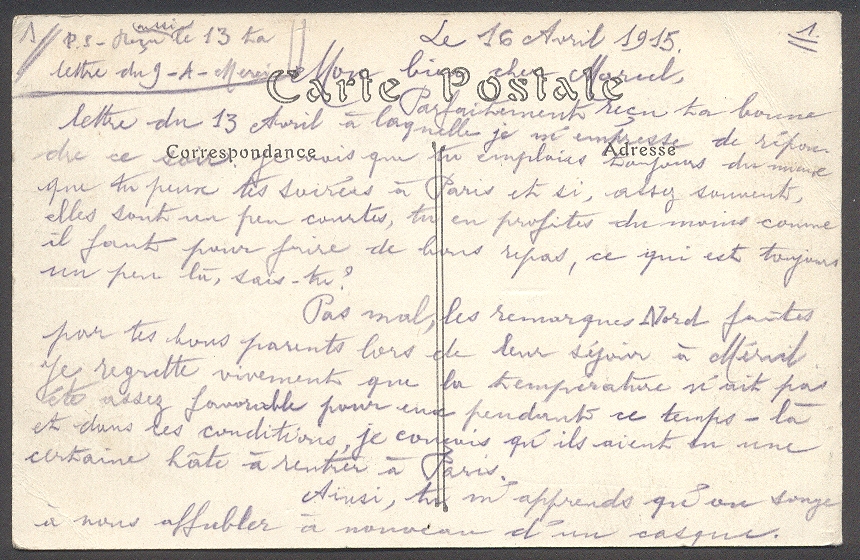 P.S- Reçu aussi le 13 ta
lettre du 9-A-
1.
Le 16 Avril 1915.
Mon bien cher Marcel,
Carte Postale
Parfaitement reçu ta bonne
lettre du 13 Avril à laquelle je m'empresse de répon-
dre ce soir. Je vois que tu emploies toujours du mieux
Correspondance
Adresse
que tu peux tes soirées à Paris et si, assez souvent,
elles sont un peu courtes, tu en profites du moins comme
il faut pour faire de bons repas, ce qui est toujours
un peu là, sais-tu?
Pas mal, les remarques Nord faites
par tes bons parents lors de leur séjour à Ménil
Je regrette vivement que la température n'ait pas
été assez favorable pour eux pendant ce temps-là
et dans ces conditions, je conçois qu'ils aient eu une
certaine hâte à rentrer à Paris.
Ainsi, tu m'apprends qu'on songe
à nous affubler à nouveau d'un casque.